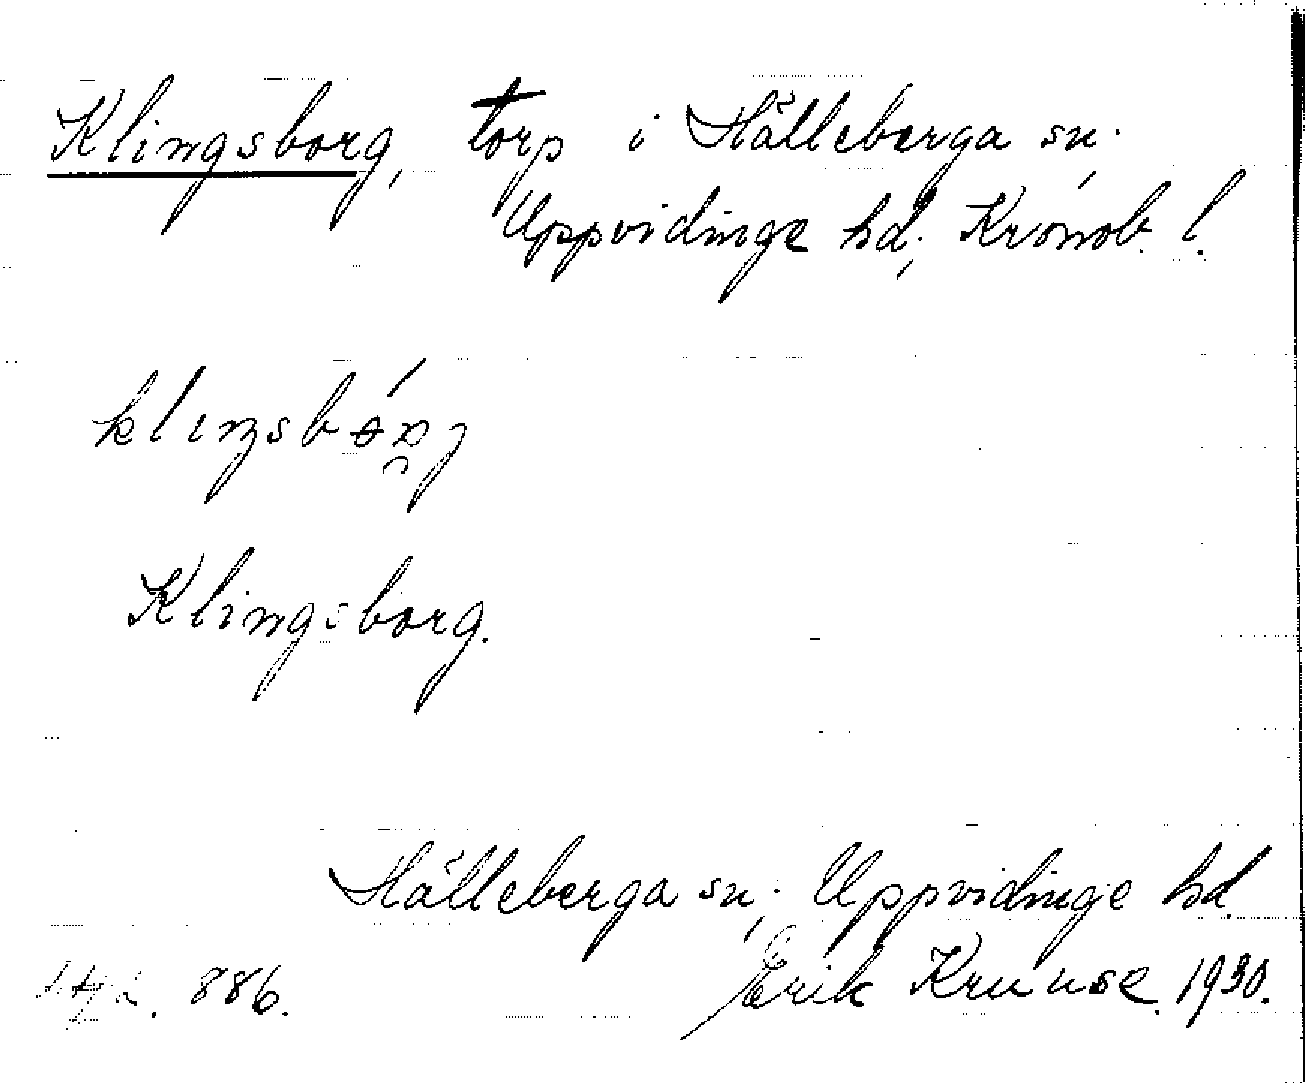 Klingsborg, torp i Hälleberga sn.
Uppvidinge hd., Kronob. l.
Klingsborg.
Hälleberga sn., Uppvidinge hd.
886. Erik Kruuse. 1930.